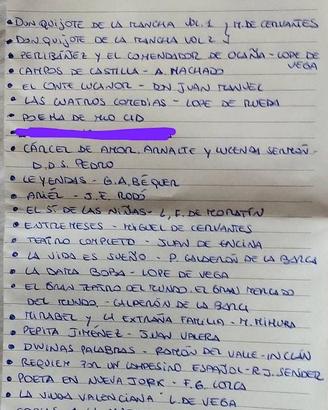 • DON QUIJOTE DE LA MANCHA VOL. 1 } M. DE CERVANTES
• DON QUIJOTE DE LA MANCHA VOL 2 }
• PERIBÁÑEZ Y EL COMENDADOR DE OCAÑA - LOPE DE VEGA
• CAMPOS DE CASTILLA - A. MACHADO
• EL CONTE LUCANOR - DON JUAN MANUEL
• LAS CUATROS COMEDIAS - LOPE DE RUEDA
• POEMA DE MIO CID
• CÁRCEL DE AMOR. ARNALTE Y LUCENDA SERMÓN -
D.D.S. PEDRO
• LEYENDAS - G.A. BÉQUER
• ARIEL - J.E. RODÓ
• EL SÍ DE LAS NIÑAS - L. F. DE MORATÍN
• ENTREMESES - MIGUEL DE CERVANTES
• TEATRO COMPLETO - JUAN DE ENCINA
• LA VIDA ES SUEÑO - P. CALDERÓN DE LA BARCA
• LA DAMA BOBA - LOPE DE VEGA
• EL GRAN TEATRO DEL MUNDO. EL GRAN MERCADO
DEL MUNDO. - CALDERÓN DE LA BARCA
• MIRABEL Y LA EXTRAÑA FAMILIA - M. MIHURA
• PEPITA JIMÉNEZ - JUAN VALERA
• DIVINAS PALABRAS - RAMÓN DEL VALLE-INCLÁN
• REQUIEM POR UN CAMPESINO ESPAÑOL - R.J. SENDER
• POETA EN NUEVA JORK - F.G. LORCA
• LA VIUDA VALENCIANA - L. DE VEGA